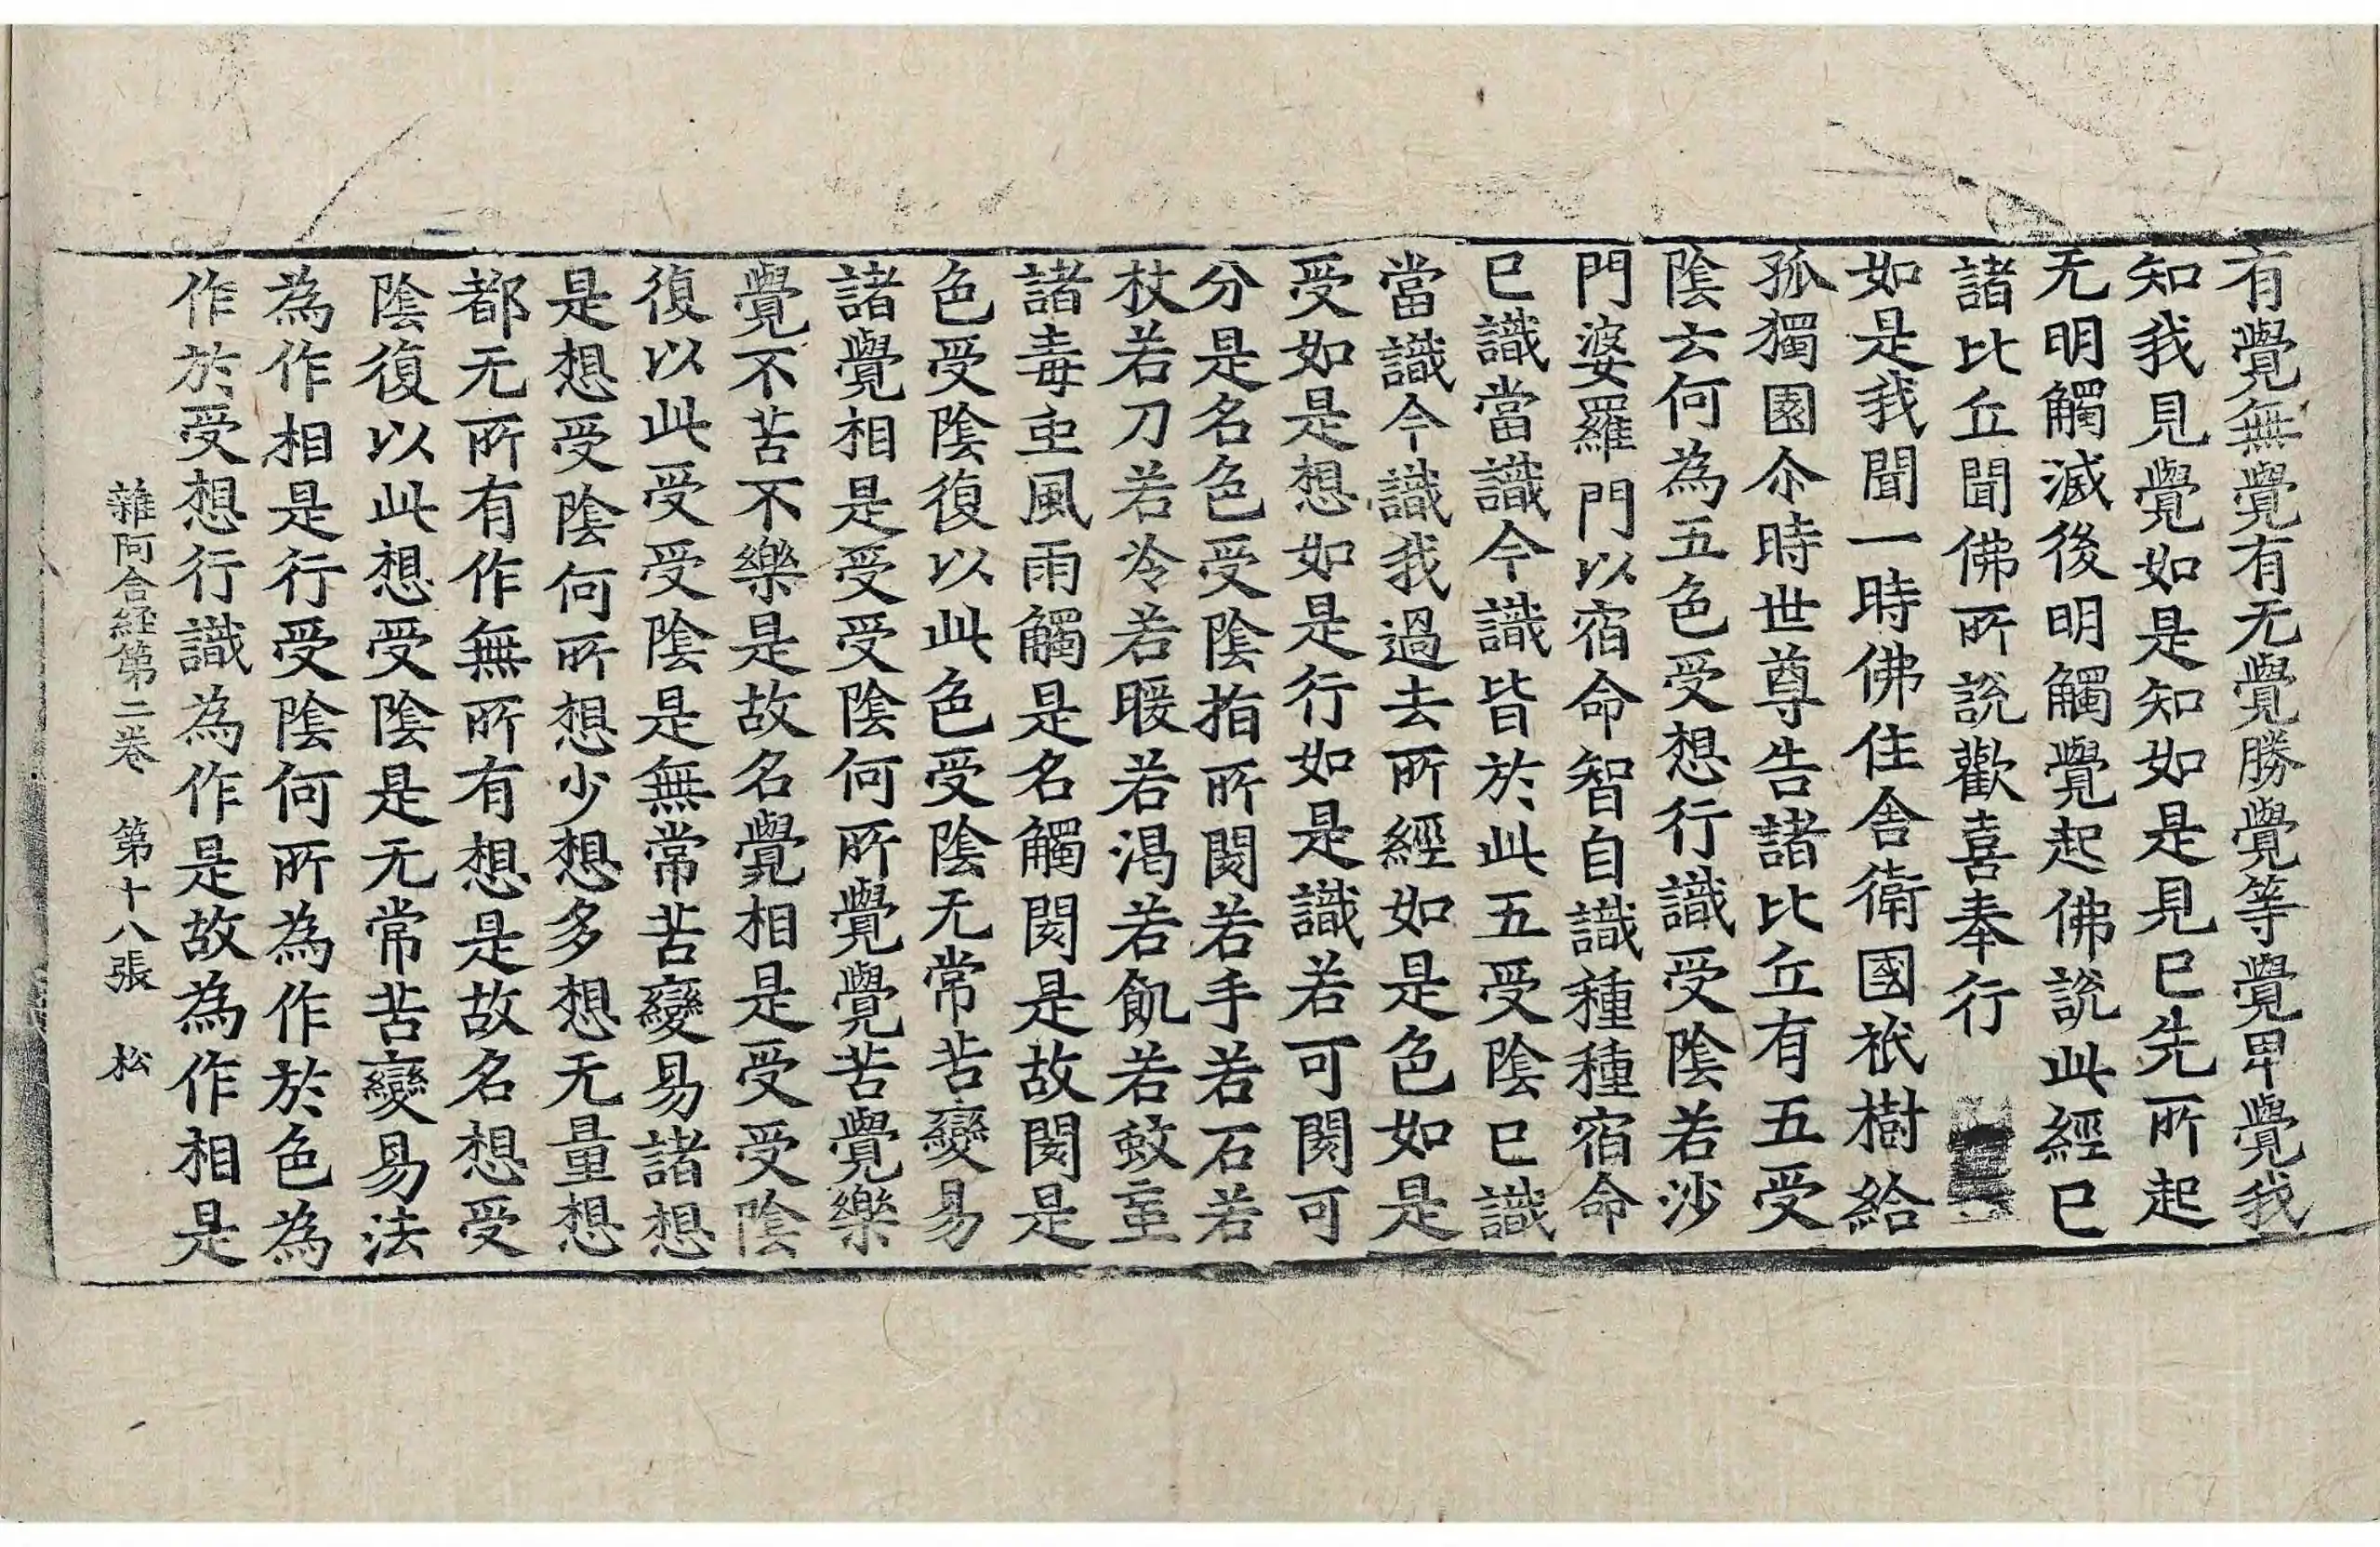 有覺無覺有无覺勝覺等覺卑覺我
知我見覺如是知如是見已先所起
无明觸滅後明觸覺起佛說此經已
諸比丘聞佛所說歡喜奉行
如是我聞一時佛住舍衛國祇樹給
孤獨園尒時世尊告諸比丘有五受
陰云何為五色受想行識受陰若沙
門婆羅門以宿命智自識種種宿命
已識當識今識皆於此五受陰已識
當識今識我過去所經如是色如是
受如是想如是行如是識若可閡可
分是名色受陰指所閡若手若石若
杖若刀若冷若暖若渴若飢若蚊䖝
諸毒䖝風雨觸是名觸閡是故閡是
色受陰復以此色受陰无常苦變易
諸覺相是受受陰何所覺覺苦覺樂
覺不苦不樂是故名覺相是受受陰
復以此受受陰是無常苦變易諸想
是想受陰何所想少想多想无量想
都无所有作無所有想是故名想受
陰復以此想受陰是无常苦變易法
為作相是行受陰何所為作於色為
作於受想行識為作是故為作相是
雜阿含経第二卷 第十八張 松